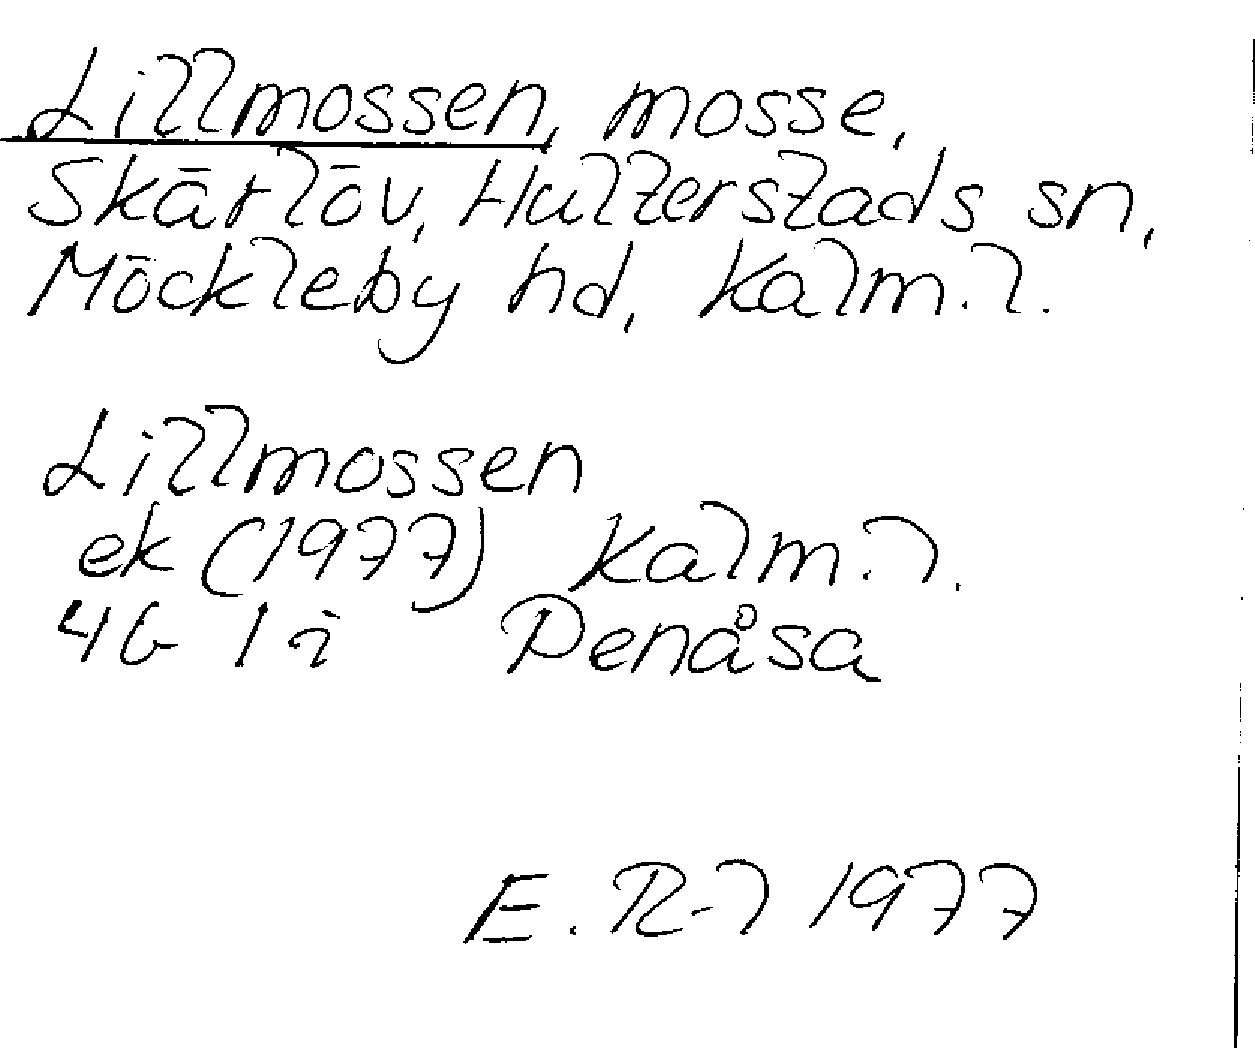 Lillmossen, mosse,
Skärlöv, Hulterstads sn,
Möckleby hd, Kalm. l.
Lillmossen
ek (1977) Kalm. l.
4G 1i Penåsa
E. R-l 1977